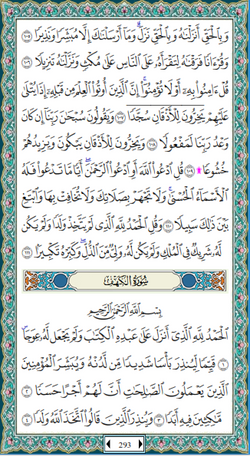 وَبِالْحَقِّ أَنْزَلْنَاهُ وَبِالْحَقِّ نَزَلَ وَمَا أَرْسَلْنَاكَ إِلَّا مُبَشِّرًا وَنَذِيرًا ١٠٥
وَقُرْءَانًا فَرَقْنَاهُ لِتَقْرَأَهُ عَلَى النَّاسِ عَلَى مُكْثٍ وَنَزَّلْنَاهُ تَنْزِيلًا ١٠٦
قُلْ ءَامِنُوا بِهِ أَوْ لَا تُؤْمِنُوا إِنَّ الَّذِينَ أُوتُوا الْعِلْمَ مِنْ قَبْلِهِ إِذَا يُتْلَى
عَلَيْهِمْ يَخِرُّونَ لِلْأَذْقَانِ سُجَّدًا ١٠٧ وَيَقُولُونَ سُبْحَانَ رَبِّنَا إِنْ كَانَ
وَعْدُ رَبِّنَا لَمَفْعُولًا ١٠٨ وَيَخِرُّونَ لِلْأَذْقَانِ يَبْكُونَ وَيَزِيدُهُمْ
خُشُوعًا ۩ ١٠٩ قُلِ ادْعُوا اللَّهَ أَوِ ادْعُوا الرَّحْمَنَ أَيًّا مَا تَدْعُوا فَلَهُ
الْأَسْمَاءُ الْحُسْنَى وَلَا تَجْهَرْ بِصَلَاتِكَ وَلَا تُخَافِتْ بِهَا وَابْتَغِ
بَيْنَ ذَلِكَ سَبِيلًا ١١٠ وَقُلِ الْحَمْدُ لِلَّهِ الَّذِي لَمْ يَتَّخِذْ وَلَدًا وَلَمْ يَكُنْ
لَهُ شَرِيكٌ فِي الْمُلْكِ وَلَمْ يَكُنْ لَهُ وَلِيٌّ مِنَ الذُّلِّ وَكَبِّرْهُ تَكْبِيرًا ١١١
سُورَةُ الْكَهْفِ
بِسْمِ اللَّهِ الرَّحْمَنِ الرَّحِيمِ
الْحَمْدُ لِلَّهِ الَّذِي أَنْزَلَ عَلَى عَبْدِهِ الْكِتَابَ وَلَمْ يَجْعَلْ لَهُ عِوَجًا ١
قَيِّمًا لِيُنْذِرَ بَأْسًا شَدِيدًا مِنْ لَدُنْهُ وَيُبَشِّرَ الْمُؤْمِنِينَ
الَّذِينَ يَعْمَلُونَ الصَّالِحَاتِ أَنَّ لَهُمْ أَجْرًا حَسَنًا ٢
مَاكِثِينَ فِيهِ أَبَدًا ٣ وَيُنْذِرَ الَّذِينَ قَالُوا اتَّخَذَ اللَّهُ وَلَدًا ٤
293